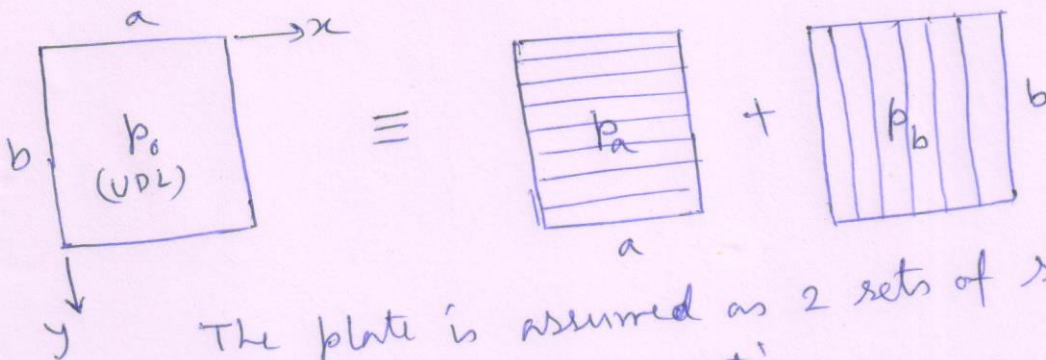 a
x
b
p₀
(UDL)
≡
pₐ
+
p_b
b
a
y
The plate is assumed as 2 sets of